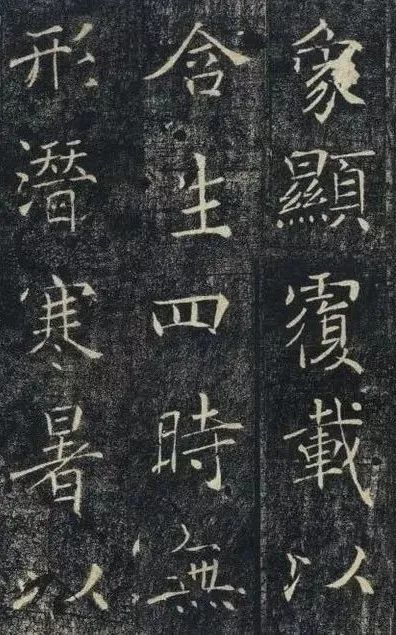 象顯覆載以
含生四時無
形潛寒暑以